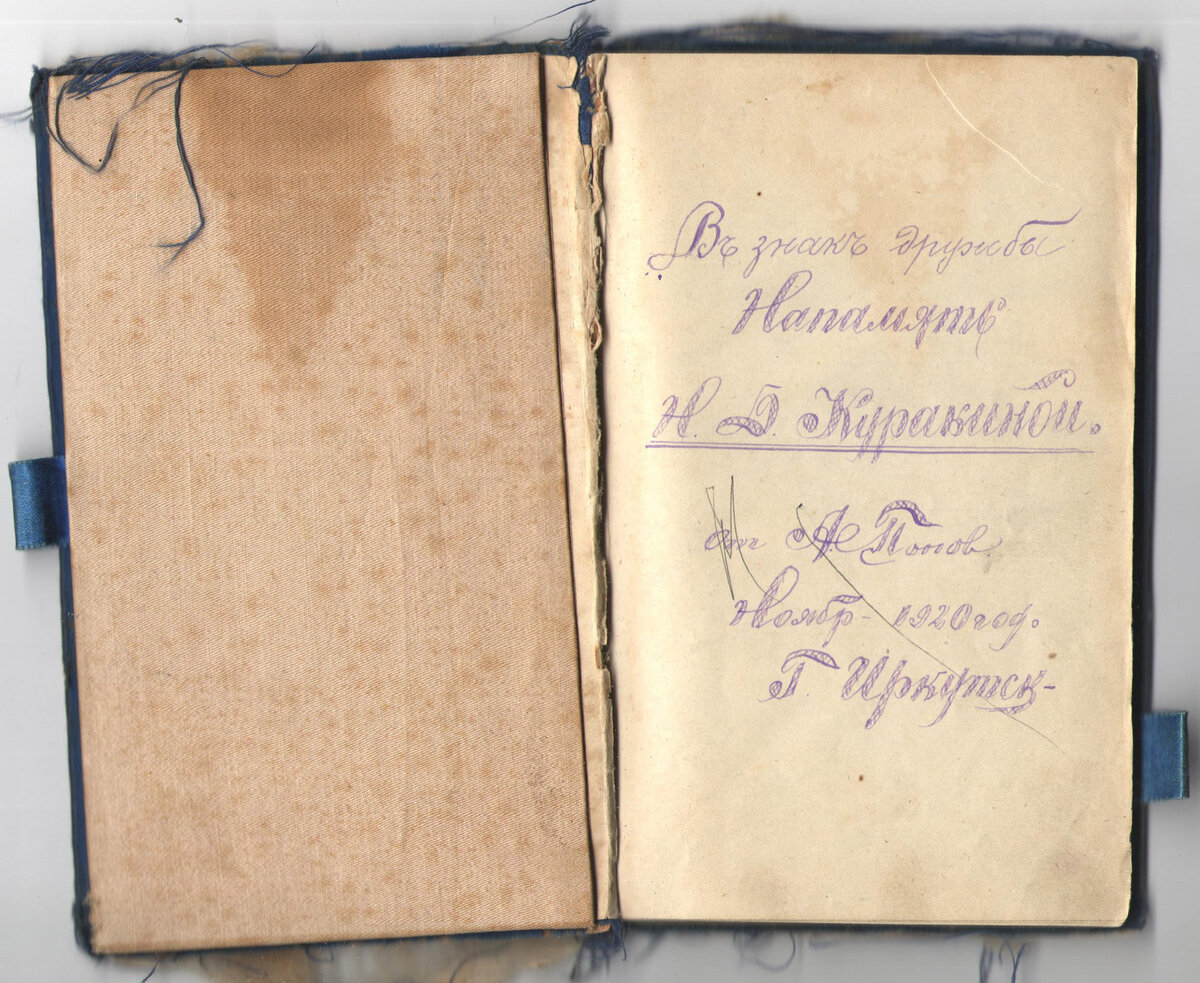 Въ знакъ дружбы
На память
Н. Б. Куракиной.
отъ А. Попов.
Ноябр- 1920 год.
Г. Иркутск-